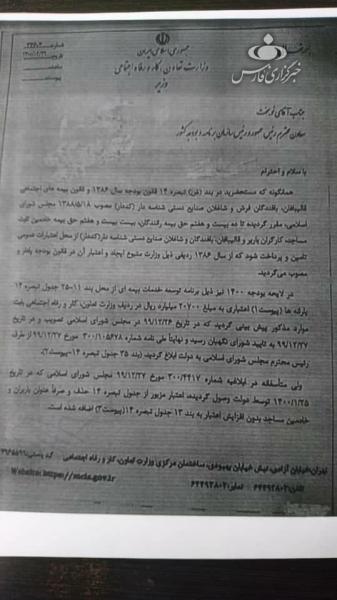 جمهوری اسلامی ایران
وزارت تعاون، کار و رفاه اجتماعی
وزیر
شماره
تاریخ
پیوست
خبرگزاری فارس
جناب آقای نوبخت
معاون محترم رئیس جمهور و رئیس سازمان برنامه و بودجه کشور
با سلام و احترام
همانگونه که مستحضرید در بند (ش) تبصره ۱۴ قانون بودجه سال ۱۳۸۶ و قانون بیمه های اجتماعی
قالیبافان، بافندگان فرش و شاغلان صنایع دستی شناسه دار (کددار) مصوب ۱۳۸۸/۵/۱۸ مجلس شورای
اسلامی، مقرر گردیده تا ده بیست و هفتم حق بیمه رانندگان، بیست بیست و هفتم حق بیمه خادمین ثابت
مساجد، کارگران باربر و قالیبافان، بافندگان و شاغلان صنایع دستی شناسه دار (کددار) از محل اعتبارات عمومی
تامین و پرداخت شود که از سال ۱۳۸۶ ردیفی ذیل وزارت متبوع ایجاد و اعتبار آن در قانون بودجه
مصوب می‌گردید.
در لایحه بودجه ۱۴۰۰ نیز ذیل برنامه توسعه خدمات بیمه ای از محل بند ۱۱-۲۵ جدول تبصره ۱۴
یارانه ها (پیوست۱) اعتباری به مبلغ ۲۰۷۰۰ میلیارد ریال در ردیف وزارت تعاون، کار و رفاه اجتماعی بابت
موارد مذکور پیش بینی گردید که در تاریخ ۹۹/۱۲/۲۶ در مجلس شورای اسلامی تصویب و در تاریخ
۹۹/۱۲/۲۷ به تایید شورای نگهبان رسید و نهایتاً طی نامه شماره مورخ ۹۹/۱۲/۲۷ از طرف
رئیس محترم مجلس شورای اسلامی به دولت ابلاغ گردید. (بند ۲۵ جدول تبصره ۱۴-پیوست۲).
ولی متأسفانه در ابلاغیه شماره مورخ ۹۹/۱۲/۲۷ مجلس شورای اسلامی که در تاریخ
۱۴۰۰/۱/۲۵ توسط دولت وصول گردیده، اعتبار مزبور از جدول تبصره ۱۴ حذف و صرفاً عنوان باربران و
خادمین مساجد بدون افزایش اعتبار به بند ۱۳ جدول تبصره ۱۴(پیوست۳) اضافه شده است.
تهران، خیابان آزادی، نبش خیابان بهبودی، ساختمان مرکزی وزارت تعاون، کار و رفاه اجتماعی کد پستی:
تلفن: نمابر: